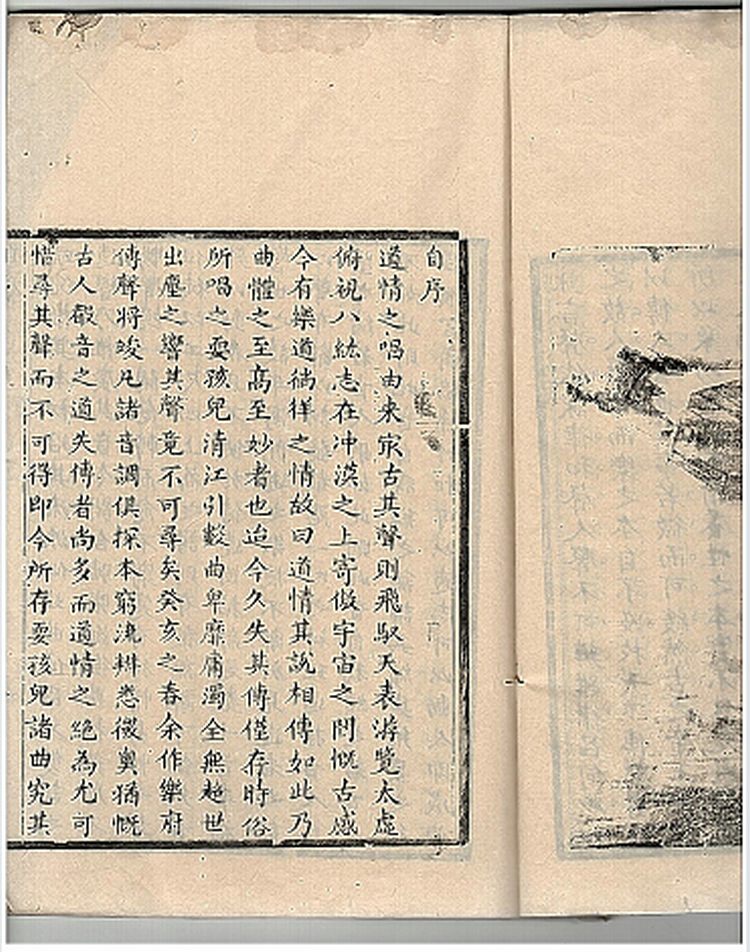 自序
道情之唱由来㝡古其聲則飛馭天表游覽太虛
俯視八紘志在冲漠之上寄傲宇宙之間慨古感
今有樂道徜徉之情故曰道情其說相傳如此乃
曲體之至髙至妙者也迨今久失其傳僅存時俗
所唱之耍孩兒清江引數曲卑靡庸濁全無超世
出塵之響其聲竟不可尋矣癸亥之春余作樂府
傳聲將竣凡諸音調俱探本窮流辨悉微奥猶慨
古人㱿音之道失傳者尚多而道情之絕為尤可
惜尋其聲而不可得即今所存耍孩兒諸曲究其